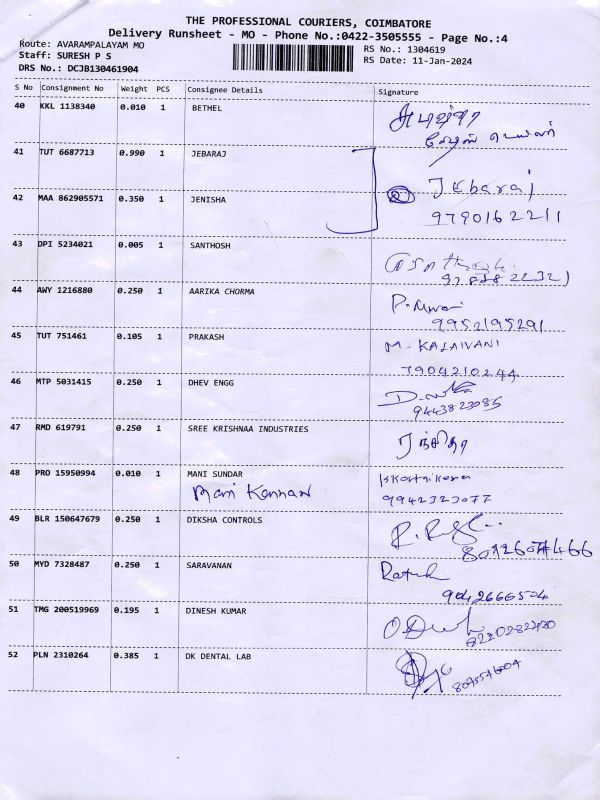 THE PROFESSIONAL COURIERS, COIMBATORE
Delivery Runsheet - MO - Phone No.:0422-3505555 - Page No.:4
Route: AVARAMPALAYAM MO
Staff: SURESH P S
DRS No.: DCJB130461904
RS No.: 1304619
RS Date: 11-Jan-2024
S No Consignment No Weight PCS Consignee Details Signature
40 KKL 1138340 0.010 1 BETHEL
41 TUT 6687713 0.990 1 JEBARAJ Jebaraj
42 MAA 862905571 0.350 1 JENISHA 9790162211
43 DPI 5234021 0.005 1 SANTHOSH
44 AWY 1216880 0.250 1 AARIKA CHORMA
9952195291
45 TUT 751461 0.105 1 PRAKASH M. KALAIVANI
7904210244
46 MTP 5031415 0.250 1 DHEV ENGG
9443823085
47 RMD 619791 0.250 1 SREE KRISHNAA INDUSTRIES
48 PRO 15950994 0.010 1 MANI SUNDAR
Mani Kannan 9942323077
49 BLR 150647679 0.250 1 DIKSHA CONTROLS
50 MYD 7328487 0.250 1 SARAVANAN
9042666504
51 TMG 200519969 0.195 1 DINESH KUMAR
52 PLN 2310264 0.385 1 DK DENTAL LAB